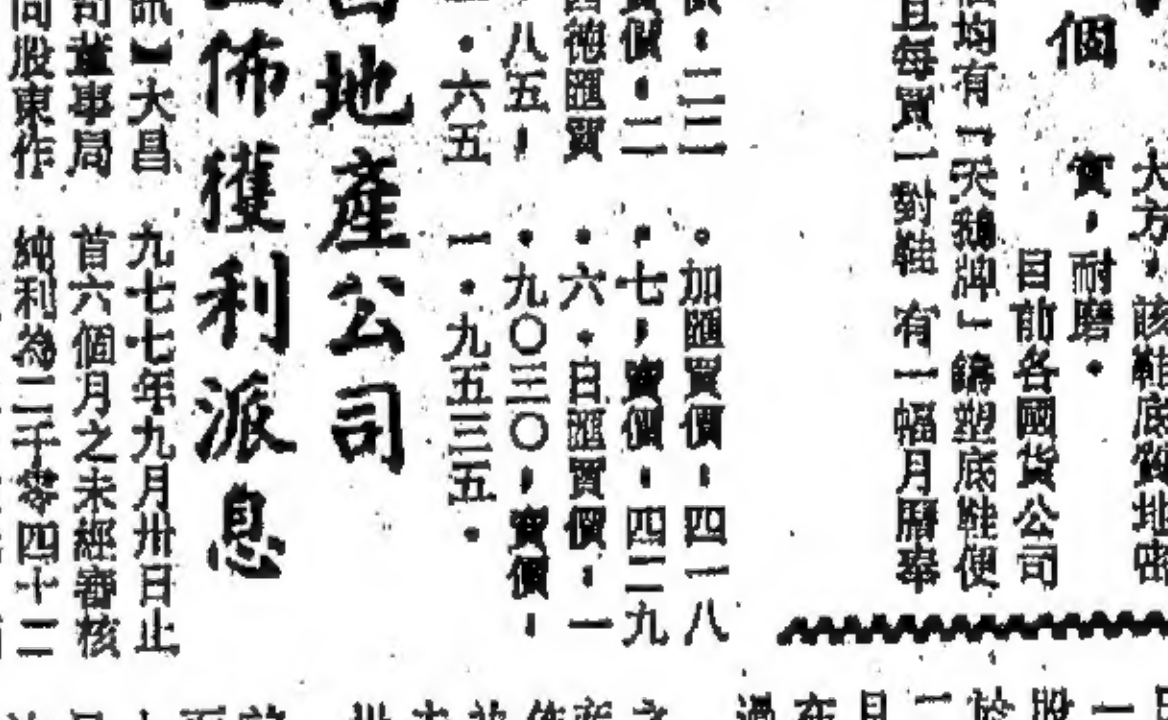 大方，該鞋底質地密
實，耐磨。
目前各國貨公司
個
均有「天鵝牌」鑄塑底鞋便
且每買一對鞋 有一幅月曆奉
價．二二
。加匯買價．四一八
賣價．二二
．七，賣價．四二九
西德匯買
．六．日匯買價．一
．八五，
．九〇三〇，賣價．
．六五
一．九五三五．
昌地產公司
佈獲利派息
訊】大昌
九七七年九月卅日止
司董事局
首六個月之未經審核
向股東作
純利為二千零四十二